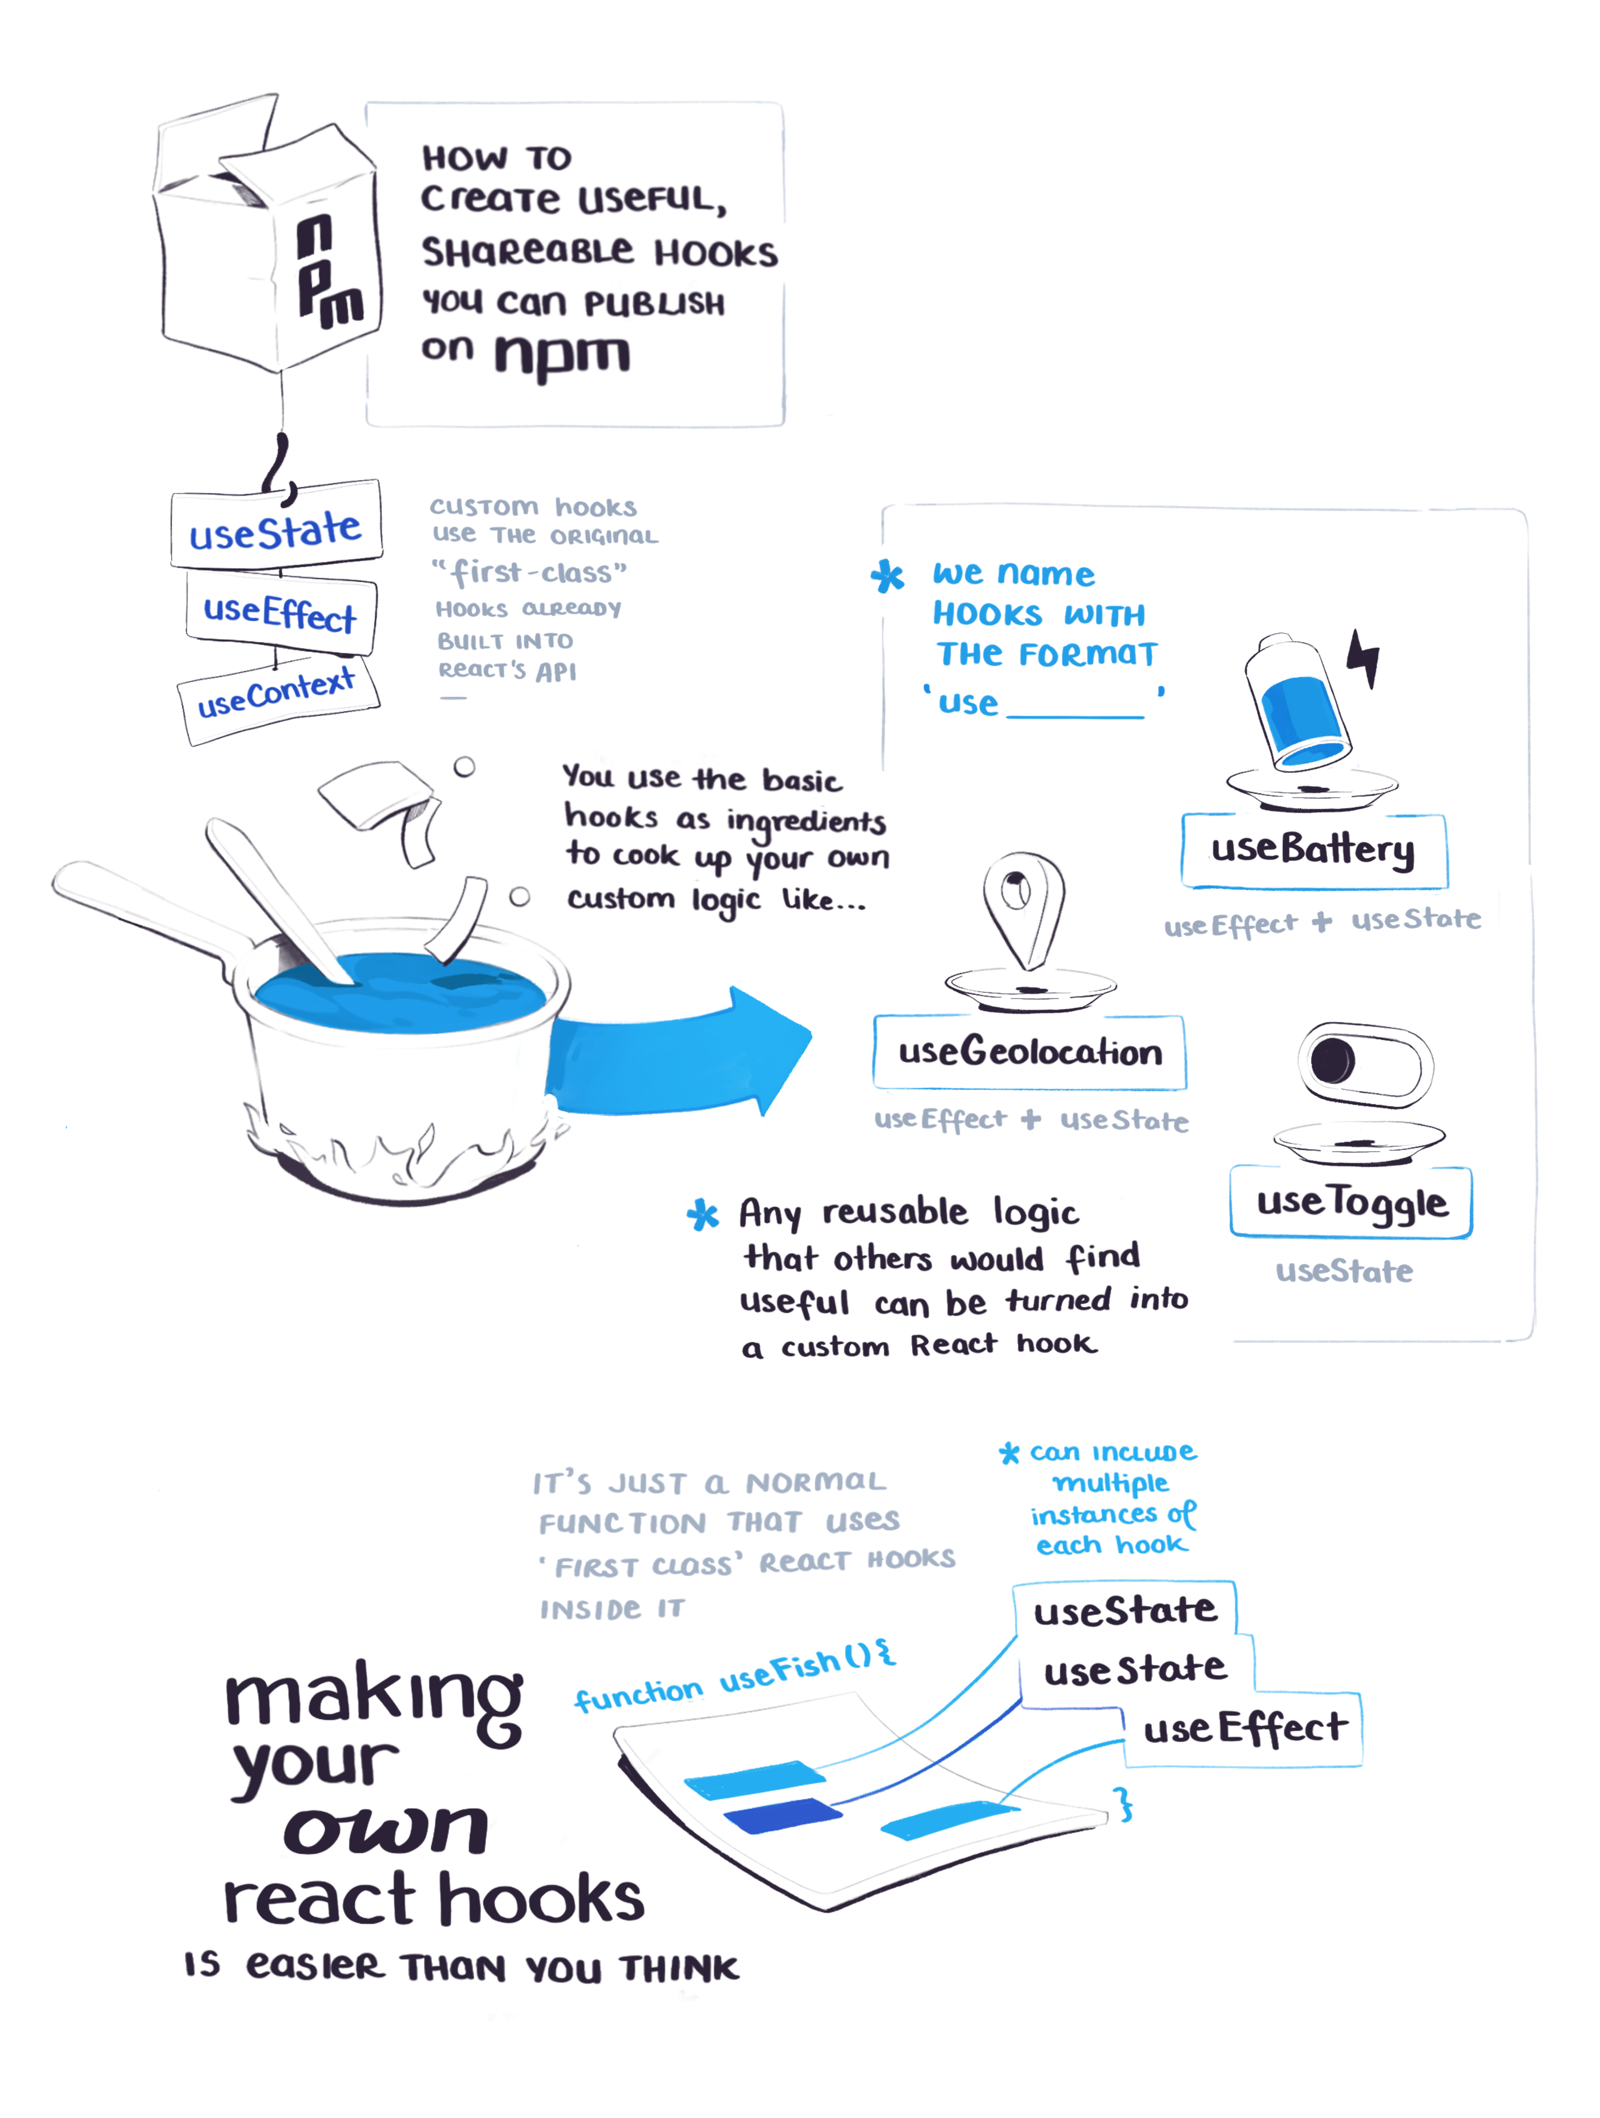 npm
HOW TO
CREATE USEFUL,
SHAREABLE HOOKS
YOU CAN PUBLISH
on npm
useState
useEffect
useContext
CUSTOM HOOKS
USE THE ORIGINAL
"first-class"
HOOKS ALREADY
BUILT INTO
REACT'S API
—
You use the basic
hooks as ingredients
to cook up your own
custom logic like...
* WE NAME
HOOKS WITH
THE FORMAT
'use ______'
useBattery
useEffect + useState
useGeolocation
useEffect + useState
useToggle
useState
* Any reusable logic
that others would find
useful can be turned into
a custom React hook
IT'S JUST A NORMAL
FUNCTION THAT USES
'FIRST CLASS' REACT HOOKS
INSIDE IT
* can INCLUDE
multiple
instances of
each hook
function useFish(){
useState
useState
useEffect
}
making
your
own
react hooks
IS EASIER THAN YOU THINK